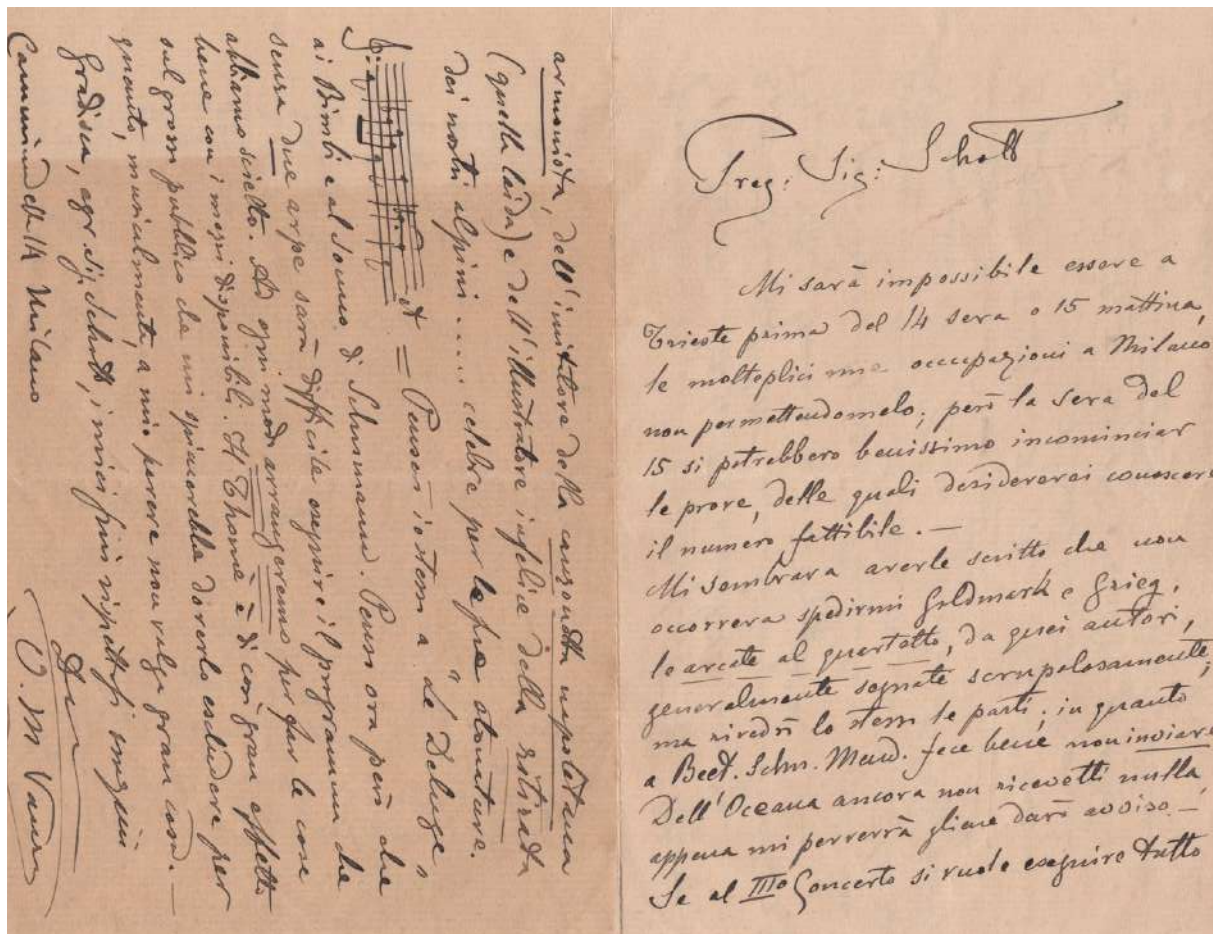 Preg: Sig: Schott
Mi sarà impossibile essere a
Trieste prima del 14 sera o 15 mattina,
le molteplici mie occupazioni a Milano
non permettendomelo; però la sera del
15 si potrebbero benissimo incominciar
le prove, delle quali desidererei conoscere
il numero fattibile. —
Mi sembrava averle scritto che non
occorreva spedirmi Goldmark e Grieg,
le arcate al quartetto, da quei autori,
generalmente segnate scrupolosamente;
ma rivedrò lo stesso le parti; in quanto
a Beet. Schu. Mend. fece bene non inviare
Dell'Oceana ancora non ricevetti nulla,
appena mi perverrà gliene darò avviso —
Se al IIIo Concerto si vuole eseguire tutto
armonista, dell'imitatore della canzonetta napoletana
(quella laida) e dell'illustratore infelice della ritirata
dei nostri alpini ..... celebre per le sue stonature.
= Penserò io stesso a "Le Deluge",
ai Bimbi e al Sogno di Schumann. Penso ora però che
senza due arpe sarà difficile eseguire il programma che
abbiamo scielto. Ad ogni modo arrangeremo per far le cose
bene con i mezzi disponibili. Il Thomé è di così gran effetto
sul grosso pubblico che mi spiacerebbe doverlo escludere per
quanto, musicalmente, a mio parere non valga gran cosa. —
Gradisca, egr. Sig. Schott, i miei più rispettosi ossequi
Milano
O. M. Vanzo